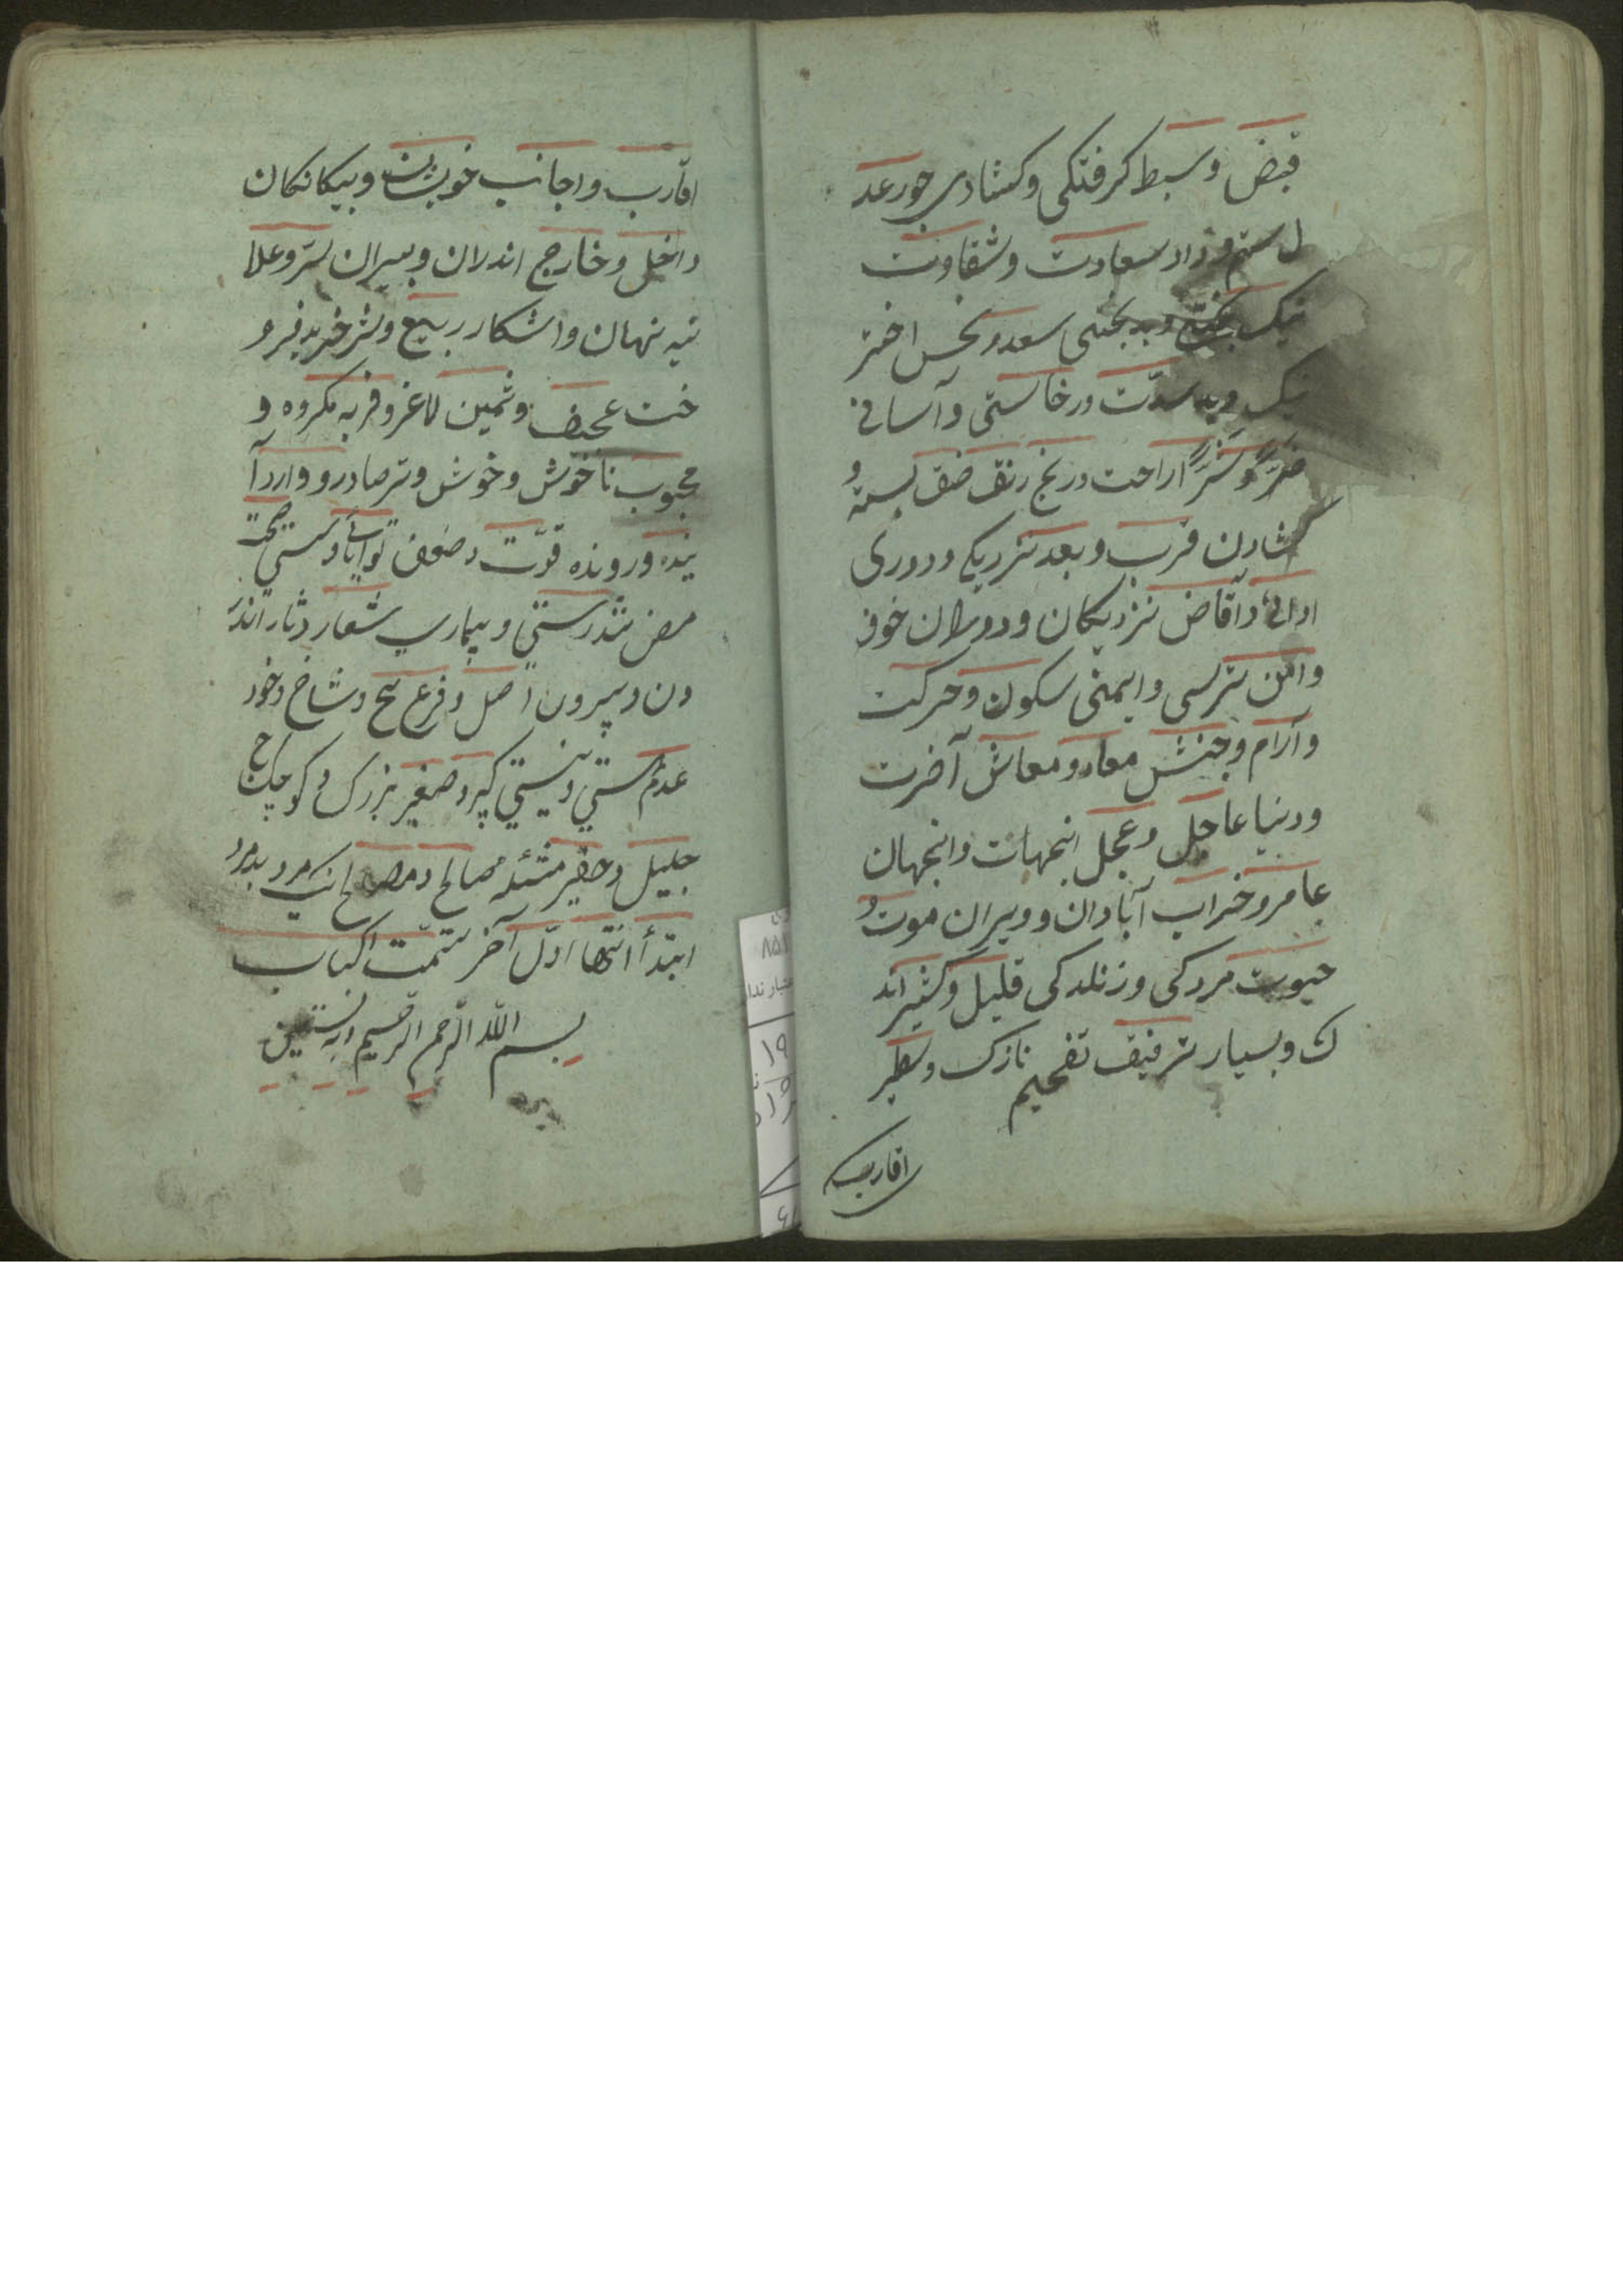 قبض و سبط کرفتکی و کشادی جور عد
ل ستم و داد سعادت و شقاوت
نیک بختی و بدبختی سعد و نحس اختر
نیک و بد شدّت و رخا سستی و آسانی
راحت و رنج رتق فتق بستهٔ و
کشادن قرب و بعد نزدیکی و دوری
نزدیکان و دوران خوف
و امن ترسی و ایمنی سکون و حرکت
و آرام و جنبش معاد و معاش آخرت
و دنیا عاجل و عجل اینجهان و انجهان
عامر و خراب آبادان و ویران موت و
حیوت مردکی و زندکی قلیل و کثیر اند
ک و بسیار ترفیق تفخیم نازک و سطبر
اقارب
اقارب و اجانب خویشان و بیکانکان
داخل و خارج اندران و بیران سرّ و علا
نیه نهان و اشکار ربیع و شر خرید فرو
خت عجیف و ثمین لاغر و فربه مکروه و
محبوب ناخوش و خوش و تر صادر و وارد آ
ینده و رونده قوّت و ضعف توانایی و سستی صحت
مرض تندرستی و بیماری شعار دثار اندر
ون و بیرون اصل و فرع بیخ و شاخ وجود
عدم هستی و نیستی کبیر و صغیر بزرک و کوچک
جلیل و حقیر مثئله صالح و مصالح نیک مرد بد مرد
ابتدأ انتها اوّل آخر تمّت الکتاب
بسم اللّه الرّحمن الرّحیم و به نستعین